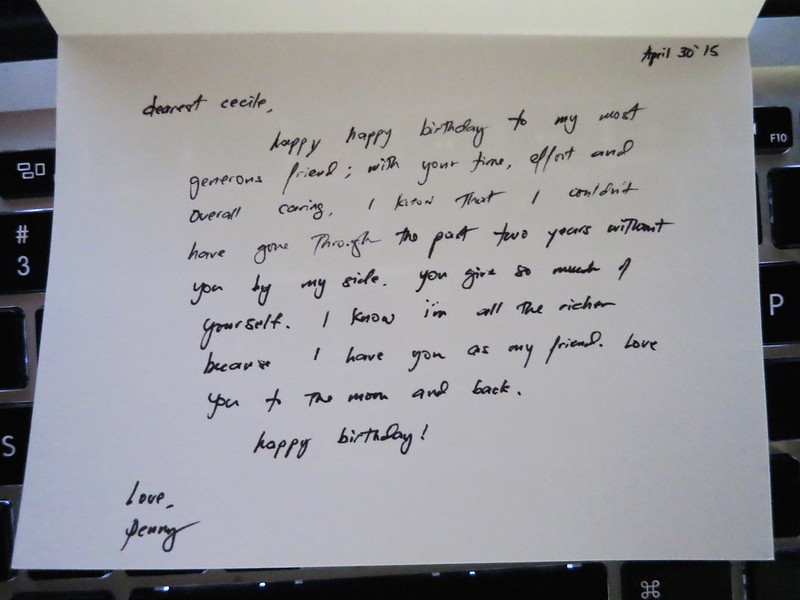 April 30'15
dearest cecile,
happy happy birthday to my most
generous friend; with your time, effort and
overall caring. I know that I couldn't
have gone through the past two years without
you by my side. you give so much of
yourself. I know i'm all the richer
because I have you as my friend. love
you to the moon and back.
happy birthday!
love,
penny
F10
#
3
P
S
⌘